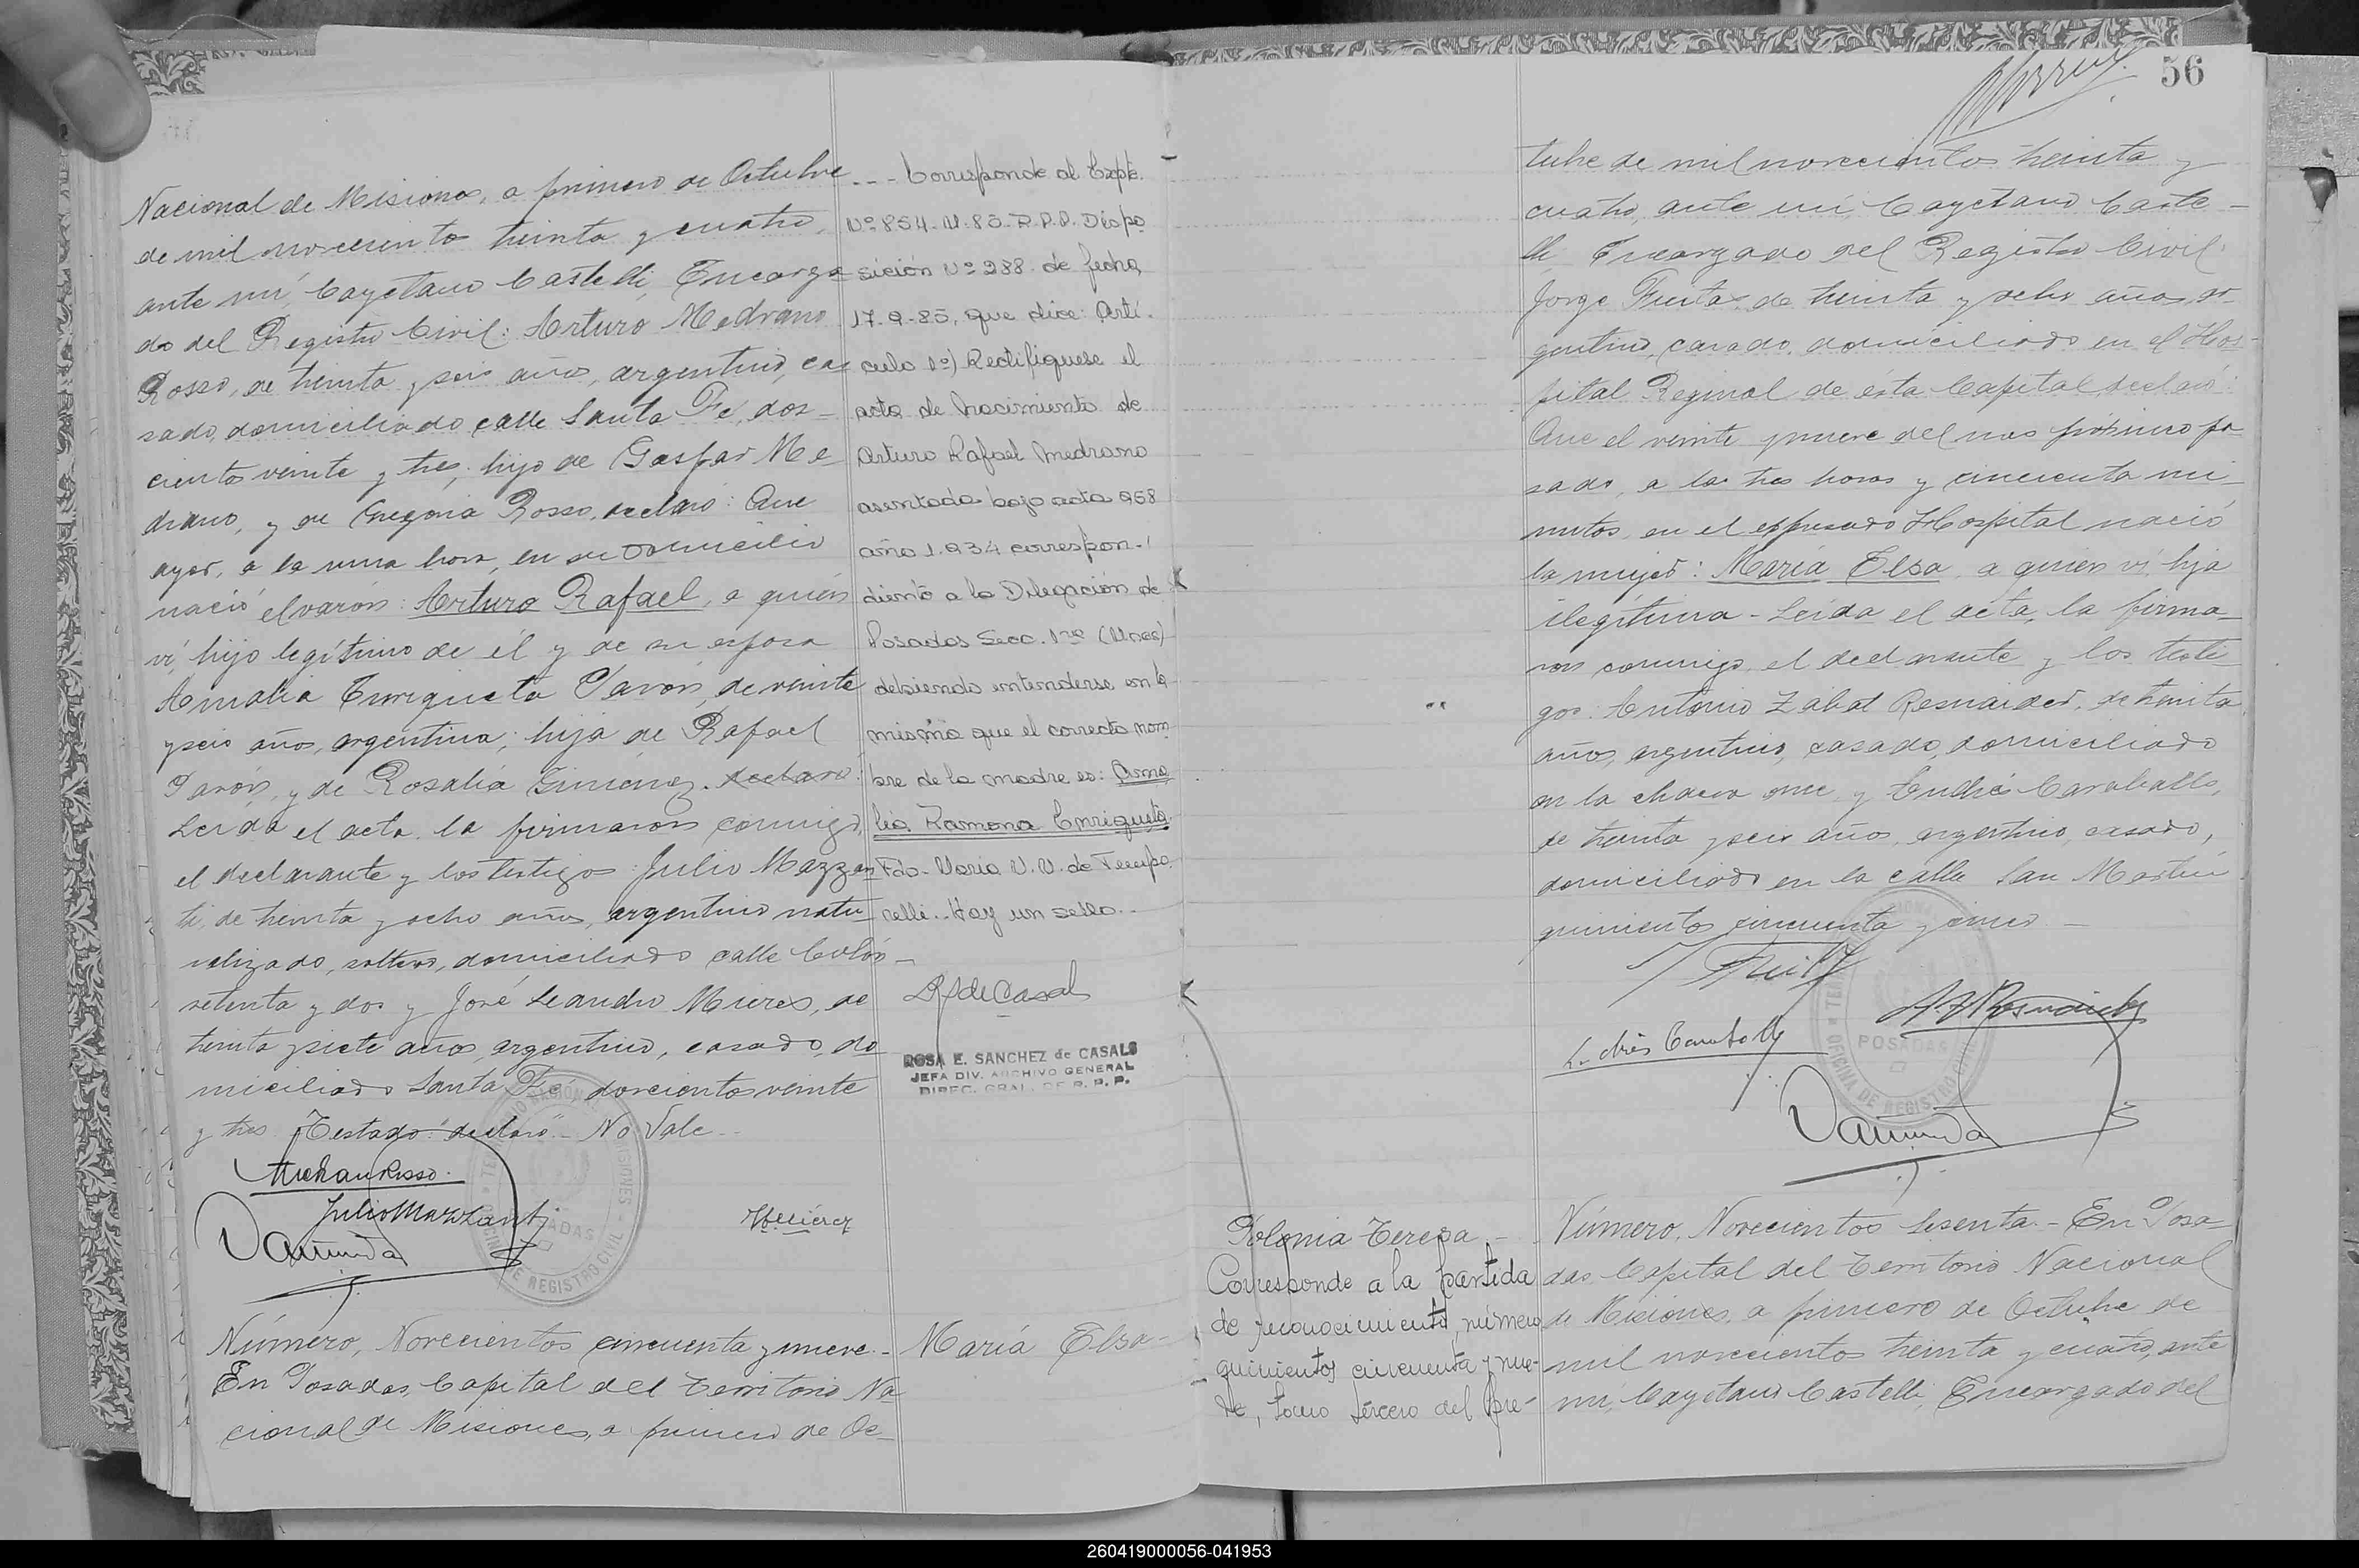 Nacional de Misiones, a primero de Octubre
de mil novecientos treinta y cuatro,
ante mí, Cayetano Castelli, Encarga
do del Registro Civil: Arturo Medrano
Rosso, de treinta y seis años, argentino, ca
sado, domiciliado calle Santa Fé, dos-
cientos veinte y tres, hijo de Gaspar Me
drano, y de Gregoria Rosso, declaró: Que
ayer, a la una hora, en su domicilio
nació el varón: Arturo Rafael, a quién
ví, hijo legítimo de él y de su esposa
Amalia Enriqueta Pavón, de veinte
y seis años, argentina, hija de Rafael
Pavón, y de Rosalía Giménez. declaro
Leida el acta, la firmaron conmigo,
el declarante y los testigos: Julio Mazzan
ti, de treinta y ocho años, argentino natu-
ralizado, soltero, domiciliado calle Colón-
setenta y dos y José Leandro Mieres, de
treinta y siete años, argentino, casado, do
miciliado Santa Fé, doscientos veinte
y tres Testado: "declaró" - No Vale -
Julio Mazzanti
Número, Novecientos cincuenta y nueve -
En Posadas, Capital del Territorio Na
cional de Misiones, a primero de Oc-
--- Corresponde al Expte.
Nº 854-M-85-R.P.P. Dispo
sición Nº 288 de fecha
17-9-85, que dice: Artí-
culo 1º) Rectifíquese el
acta de nacimiento de
Arturo Rafael Medrano
asentada bajo acta 958
año 1.934 correspon-
diente a la Delegación de
Posadas Secc. 1ra (Unica)
debiendo entenderse en la
misma que el correcto nom
bre de la madre es: Ama
lia Ramona Enriqueta
Fdo. María V. V. de
Hay un sello..
ROSA E. SANCHEZ de CASALS
JEFA DIV. ARCHIVO GENERAL
DIREC. GRAL. DE R. P. P.
María Elsa-
56
tubre de mil novecientos treinta y
cuatro, ante mí, Cayetano Caste-
lli, Encargado del Registro Civil:
Jorge Freitas, de treinta y ocho años, ar-
gentino, casado, domiciliado en el Hos-
pital Regional de ésta Capital, declaró:
Que el veinte y nueve del mes próximo pa
sado, a las tres horas y cincuenta mi-
nutos, en el expresado Hospital nació
la mujer: María Elsa, a quién ví, hija
ilegítima - Leída el acta, la firma-
ron conmigo, el declarante y los testi
gos: Antonio Zabat Resnaider, de treinta
años, argentino, casado, domiciliado
en la chacra once y Andrés Caraballo,
de treinta y seis años, argentino, casado,
domiciliado en la calle San Martín
quinientos cincuenta y cinco -
POSADAS
OFICINA DE REGISTRO CIVIL
Polonia Teresa -
Corresponde a la partida
de reconocimiento, número
quinientos cincuenta y nue-
ve, tomo tercero del pre-
Número, Novecientos Sesenta. - En Posa
das Capital del Territorio Nacional
de Misiones, a primero de Octubre de
mil novecientos treinta y cuatro, ante
mí, Cayetano Castelli, Encargado del
260419000056-041953